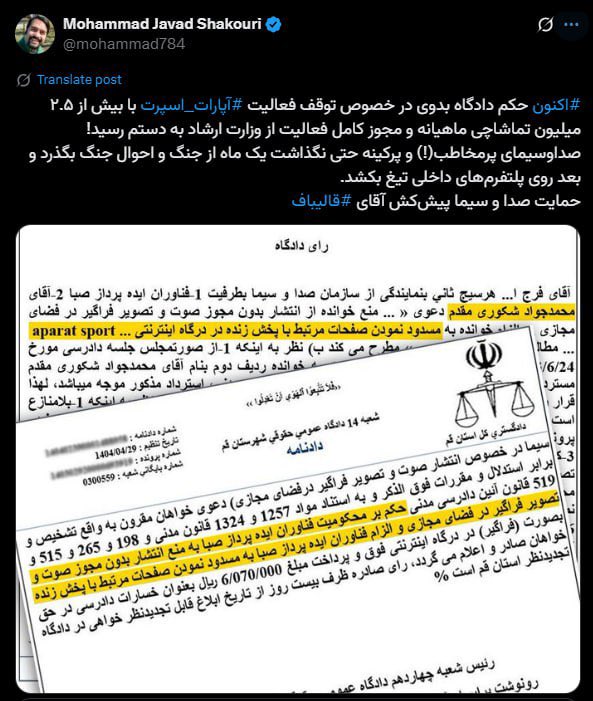 Mohammad Javad Shakouri
@mohammad784
Translate post
#اکنون حکم دادگاه بدوی در خصوص توقف فعالیت #آپارات_اسپرت با بیش از ۲.۵
میلیون تماشاچی ماهیانه و مجوز کامل فعالیت از وزارت ارشاد به دستم رسید!
صداوسیمای پرمخاطب(!) و پرکینه حتی نگذاشت یک ماه از جنگ و احوال جنگ بگذرد و
بعد روی پلتفرم‌های داخلی تیغ بکشد.
حمایت صدا و سیما پیش‌کش آقای #قالیباف
رای دادگاه
آقای فرج ا... هرسیج ثاني بنمایندگي از سازمان صدا و سیما بطرفیت 1-فناوران ایده پرداز صبا 2-آقاي
محمدجواد شکوري مقدم دعوی « ... منع خوانده از انتشار بدون مجوز صوت و تصویر فراگیر در فضای
مجازی خوانده به مسدود نمودن صفحات مرتبط با پخش زنده در درگاه اینترنتی ... aparat sport
... مطرح می کند ب) نظر به اینکه 1-از صورتمجلس جلسه دادرسی مورخ
6/24/ خوانده ردیف دوم بنام آقاي محمدجواد شکوري مقدم
مسترد استرداد مذکور موجه میباشد، لهذا
قرار اینکه 1-بلامنازع
است
«فَلا تَتَّبِعُوا الْهَوى أَنْ تَعْدِلُوا»
دادگستری کل استان قم
شعبه 14 دادگاه عمومي حقوقي شهرستان قم
دادنامه
شماره دادنامه :
تاریخ تنظیم : 1404/04/29
شماره پرونده :
شماره بایگاني شعبه : 0300559
سیما در خصوص انتشار صوت و تصویر فراگیر درفضاي مجازي) دعوي خواهان مقرون به واقع تشخیص و
برابر استدلال و مقررات فوق الذکر و به استناد مواد 1257 و 1324 قانون مدني و 198 و 265 و 515 و
519 قانون آئین دادرسي مدني حکم بر محکومیت فناوران ایده پرداز صبا به منع انتشار بدون مجوز صوت و
تصویر فراگیر در فضاي مجازي و الزام فناوران ایده پرداز صبا به مسدود نمودن صفحات مرتبط با پخش زنده
بصورت (فراگیر) در درگاه اینترنتي فوق و پرداخت مبلغ 6/070/000 ریال بعنوان خسارات دادرسي در حق
خواهان صادر و اعلام مي گردد، راي صادره ظرف بیست روز از تاریخ ابلاغ قابل تجدیدنظر خواهي در دادگاه
تجدیدنظر استان قم است %
رئیس شعبه چهاردهم دادگاه عمو
رونوشت برابر